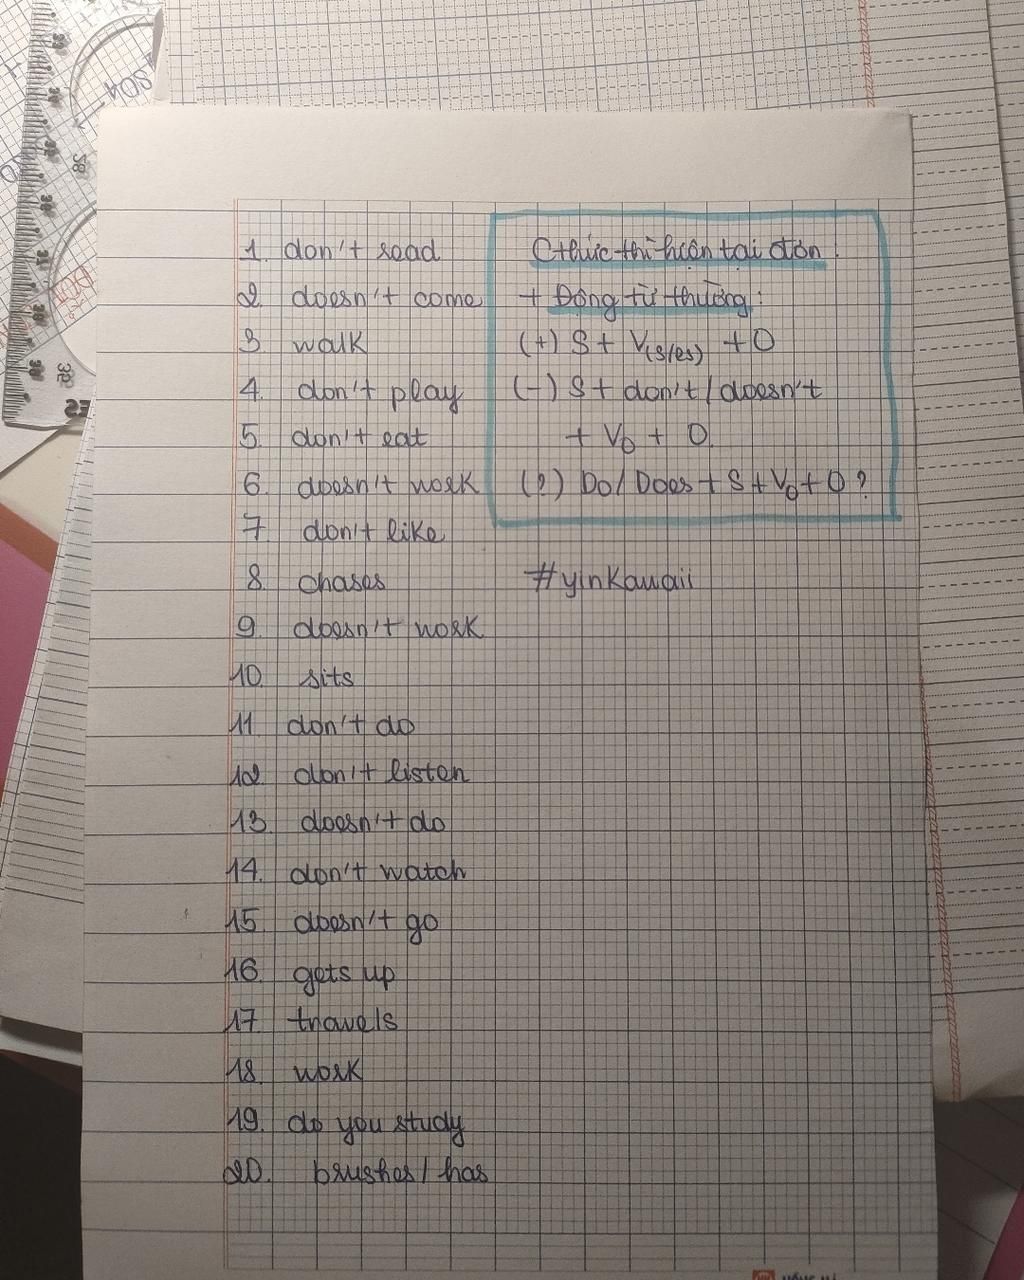 1. don't read
2. doesn't come
3. walk
4. don't play
5. don't eat
6. doesn't work
7. don't like
8. chases
9. doesn't work
10. sits
11. don't do
12. don't listen
13. doesn't do
14. don't watch
15. doesn't go
16. gets up
17. travels
18. work
19. do you study
20. brushes / has
Cthức thì hiện tại đơn:
+ Động từ thường:
(+) S + V(s/es) + O
(-) S + don't / doesn't
+ V₀ + O.
(?) Do / Does + S + V₀ + O ?
#yinkawaii